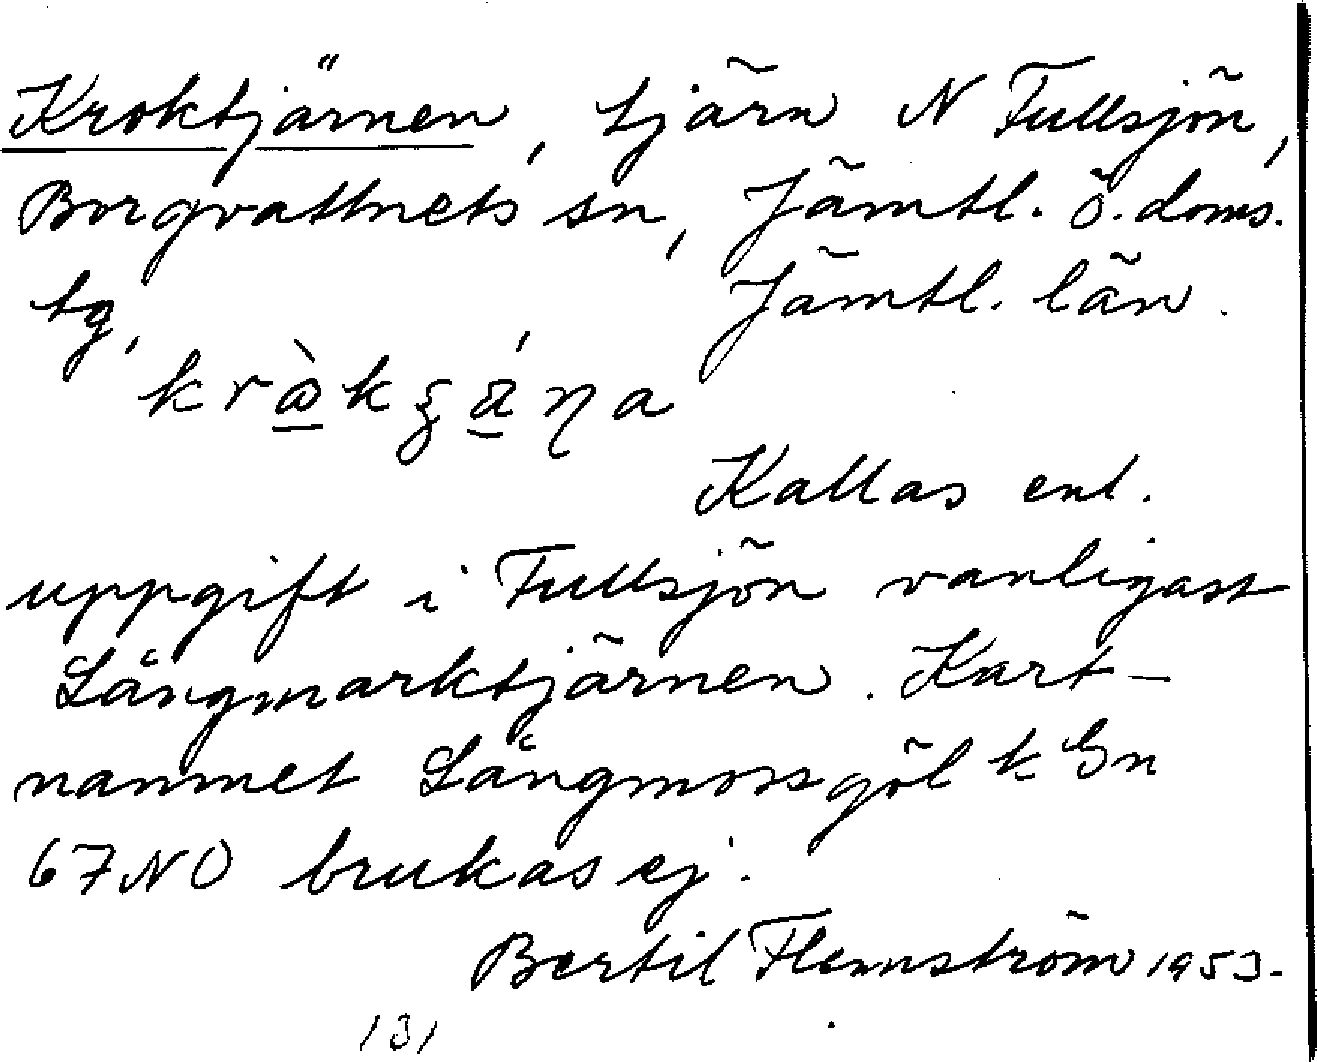 Kroktjärnen, tjärn N Fullsjön,
Borgvattnets sn, Jämtl. ö. doms.
tg, Jämtl. län.
Kallas enl.
uppgift i Fullsjön vanligast
Långmarktjärnen. Kart-
namnet Långmossgöl k Gn
67 NO brukas ej.
Bertil Flemström 1953.
131